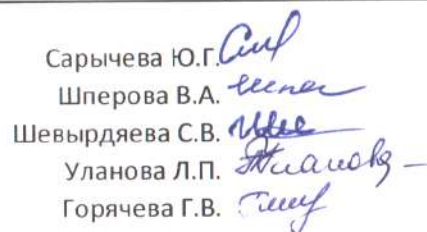 Сарычева Ю.Г.
Шперова В.А.
Шевырдяева С.В.
Уланова Л.П.
Горячева Г.В.